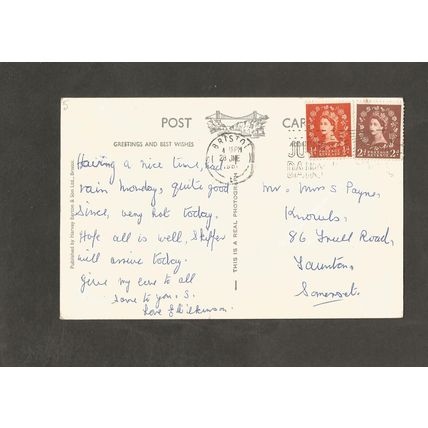 5
POST CAR
GREETINGS AND BEST WISHES
Having a nice time, had
rain Monday, quite good
Since, very hot today.
Hope all is well,
will arrive today.
Give my love to all
same to you, S.
Love G Wilkinson.
Published by Harvey Barton & Son Ltd., Bristol
THIS IS A REAL PHOTOGRAPH
BRISTOL
4 15PM
28 JNE
½d ½d
2d 2d
Mr. Mrs S Payne,
Knowls,
86 Lyell Road,
Taunton,
Somerset.